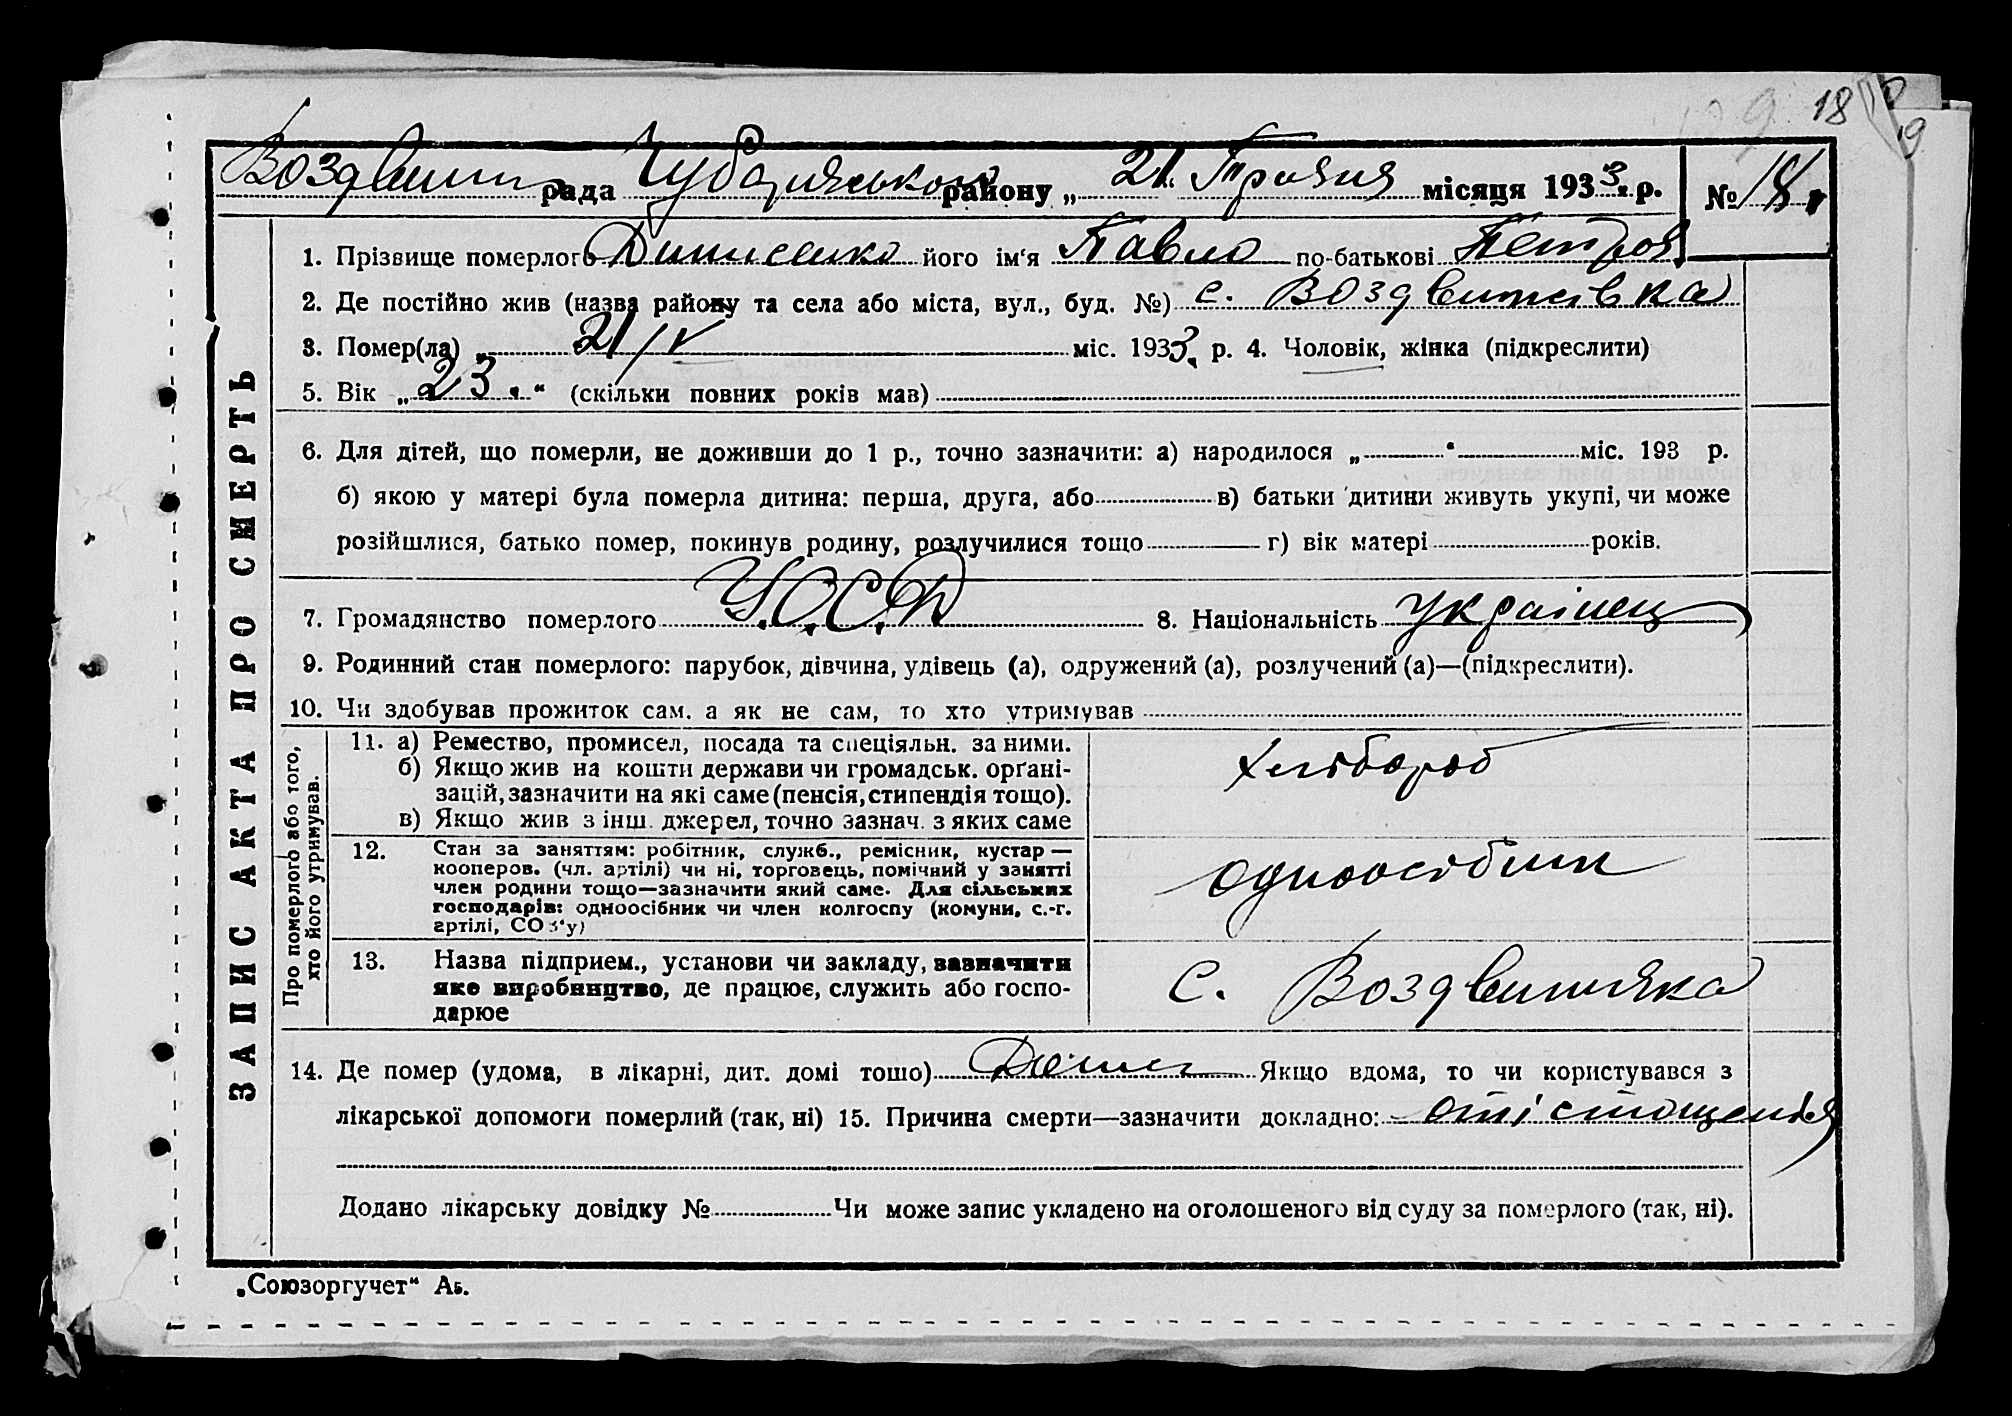 18
Воздвиж рада Чубарівського району „21“ Травня місяця 1933 р. № 18
ЗАПИС АКТА ПРО СМЕРТЬ
1. Прізвище померлого Данисенко його ім'я Павло по-батькові Петров
2. Де постійно жив (назва району та села або міста, вул., буд. №) с. Воздвижівка
3. Помер(ла) „ 21/V міс. 1933 р. 4. Чоловік, жінка (підкреслити)
5. Вік „23“ (скільки повних років мав)
6. Для дітей, що померли, не доживши до 1 р., точно зазначити: а) народилося „ “ міс. 193 р.
б) якою у матері була померла дитина: перша, друга, або в) батьки дитини живуть укупі, чи може
розійшлися, батько помер, покинув родину, розлучилися тощо г) вік матері років.
7. Громадянство померлого У.С.Р.Р. 8. Національність українец
9. Родинний стан померлого: парубок, дівчина, удівець (а), одружений (а), розлучений (а)—(підкреслити).
10. Чи здобував прожиток сам. а як не сам, то хто утримував
Про померлого або того, хто його утримував.
11. а) Ремество, промисел, посада та спеціяльн. за ними.
б) Якщо жив на кошти держави чи громадськ. орґані-
зацій, зазначити на які саме (пенсія, стипендія тощо).
в) Якщо жив з інш. джерел, точно зазнач. з яких саме
хлібороб
12. Стан за заняттям: робітник, служб., ремісник, кустар —
кооперов. (чл. артілі) чи ні, торговець, помічний у занятті
член родини тощо—зазначити який саме. Для сільських
господарів: одноосібник чи член колгоспу (комуни, с.-г.
артілі, СОЗ'у)
одноосібник
13. Назва підприєм., установи чи закладу, зазначити
яке виробництво, де працює, служить або госпо-
дарює
с. Воздвижівка
14. Де помер (удома, в лікарні, дит. домі тощо) Дома Якщо вдома, то чи користувався з
лікарської допомоги померлий (так, ні) 15. Причина смерти—зазначити докладно: от істощенія
Додано лікарську довідку № Чи може запис укладено на оголошеного від суду за померлого (так, ні).
„Союзоргучет“ Аб.